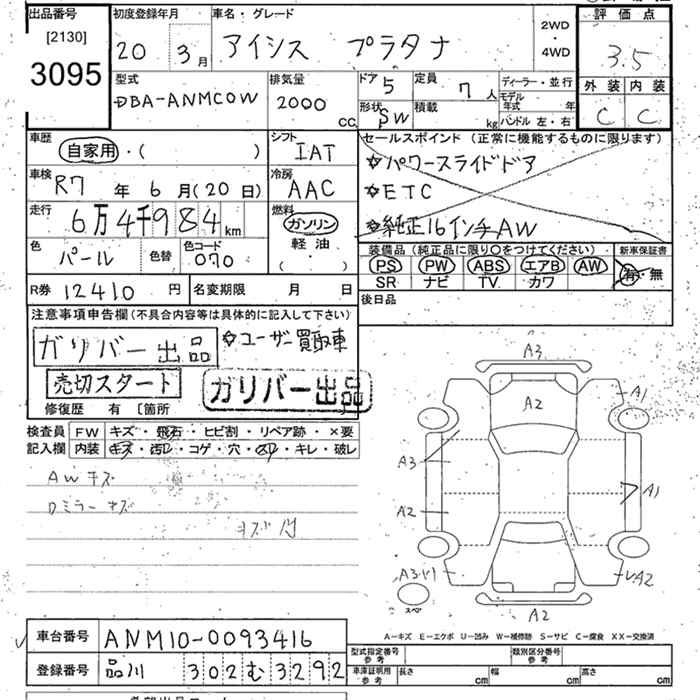 出品番号 初度登録年月 車名・グレード 評価点
[2130]
3095 20年 3月 アイシス プラタナ 2WD・4WD 3.5
型式 DBA-ANM10W 排気量 2000 CC ドア 5 定員 7人 ディーラー・並行 外装 内装
形状 SW 積載 kg モデル年式 年 ハンドル 左・右 C C
車歴 自家用・( ) シフト IAT セールスポイント (正常に機能するものに限ります)
☆パワースライドドア
車検 R7年 6月(20日) 冷房 AAC ☆ETC
走行 6万4千984km 燃料 ガソリン 軽油 ( ・ ) ☆純正16インチAW
色 パール 色替 色コード 070 装備品 (純正品に限り○をつけてください) 新車保証書
PS PW ABS エアB AW 有・無
SR ナビ TV カワ
R券 12410円 名変期限 月 日 後日品
注意事項申告欄(不具合内容等は具体的に記入して下さい)
ガリバー出品 ☆ユーザー買取車
売切スタート ガリバー出品
修復歴 有 [箇所
検査員 FW キズ・飛石・ヒビ割・リペア跡・×要
記入欄 内装 キズ・汚レ・コゲ・穴・・キレ・破レ
AWキズ
Dミラーキズ
キズ
A3
A2
A1
A3
A2
A1
A3
A2
A2
スペア
A―キズ E―エクボ U―凹み W―補修跡 S―サビ C―腐食 XX―交換済
車台番号 ANM10-0093416
型式指定番号 参考 類別区分番号 参考
登録番号 品川 302 む 3292
車庫証明用 参考 長さ cm 幅 cm 高さ cm